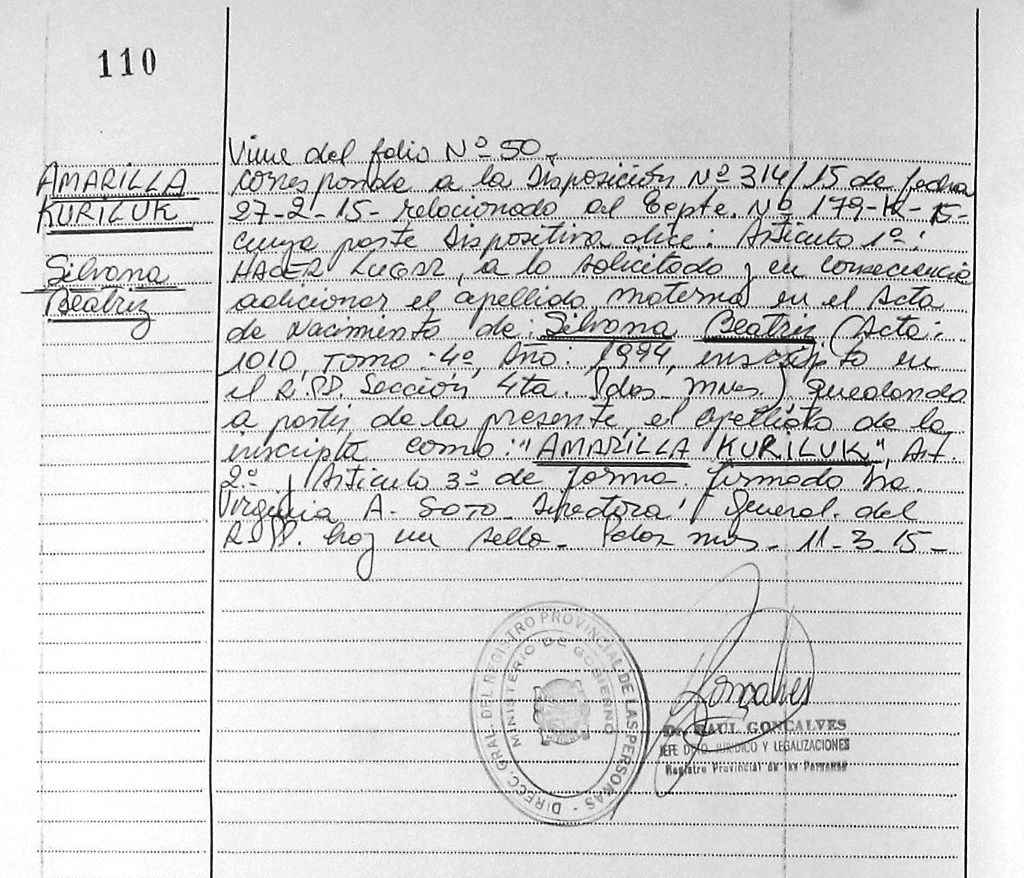 110
AMARILLA
KURILUK
Silvana
Beatriz
Viene del folio Nº 50.
corresponde a la Disposición Nº 314/15 de fecha
27-2-15- relacionado al Expte. Nº 179-K-15-
cuya parte Dispositiva dice: Artículo 1º:
HACER LUGAR, a lo solicitado y en consecuencia
adicionar el apellido materno en el Acta
de Nacimiento de: Silvana Beatriz (Acta:
1010, Tomo: 4º, Año: 1994, inscripto en
el R.PP. Sección 4ta. Pdas. Mnes.) quedando
a partir de la presente, el apellido de la
inscripta como: "AMARILLA KURILUK", Art.
2º y Artículo 3º de forma. Firmado Dra.
Virginia A. SOTO Directora General del
R.PP. hay un sello. Pdas mnes. 11-3-15-
DIRECC. GRAL. DEL REGISTRO PROVINCIAL DE LAS PERSONAS -
MINISTERIO DE GOBIERNO
Goncalves
Dr. RAUL GONCALVES
JEFE DPTO. JURIDICO Y LEGALIZACIONES
Registro Provincial de las Personas